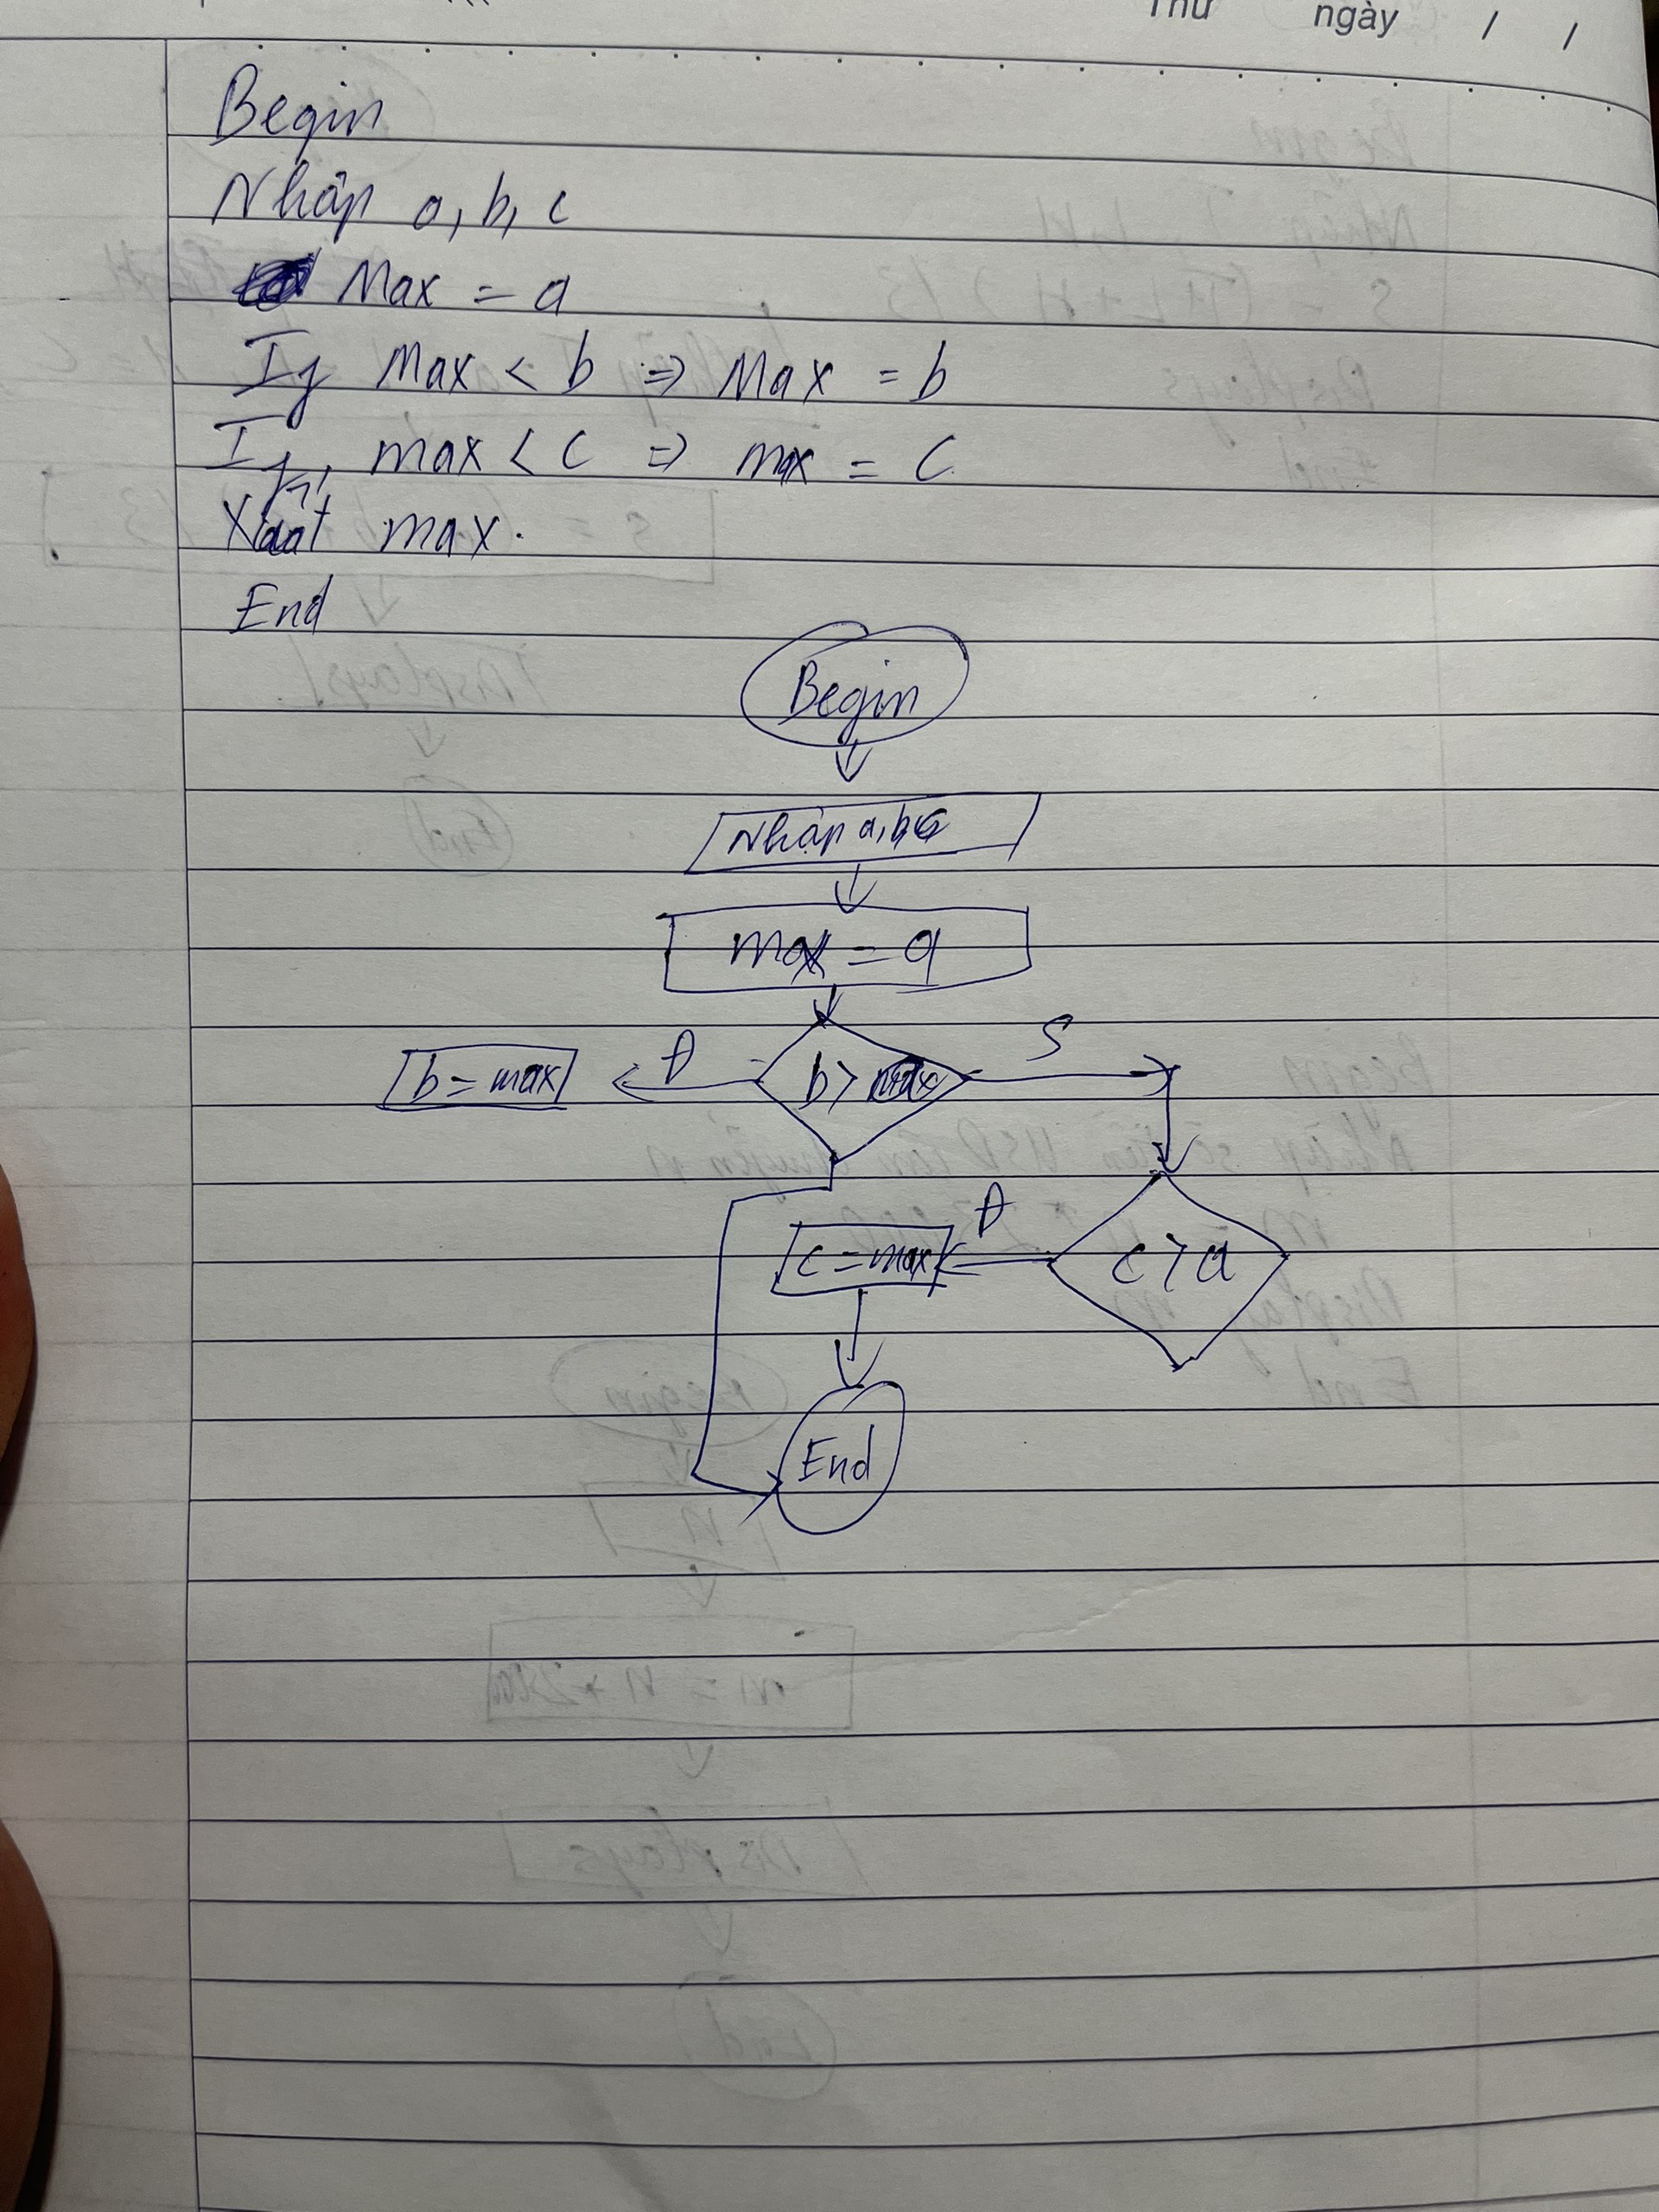 Thứ ngày / /
Begin
Nhập a, b, c
Max = a
If Max < b => Max = b
If max < c => max = c
Xuất max.
End
Begin
Nhập a, b, c
max = a
b = max
Đ
b > max
S
c = max
Đ
c > a
End